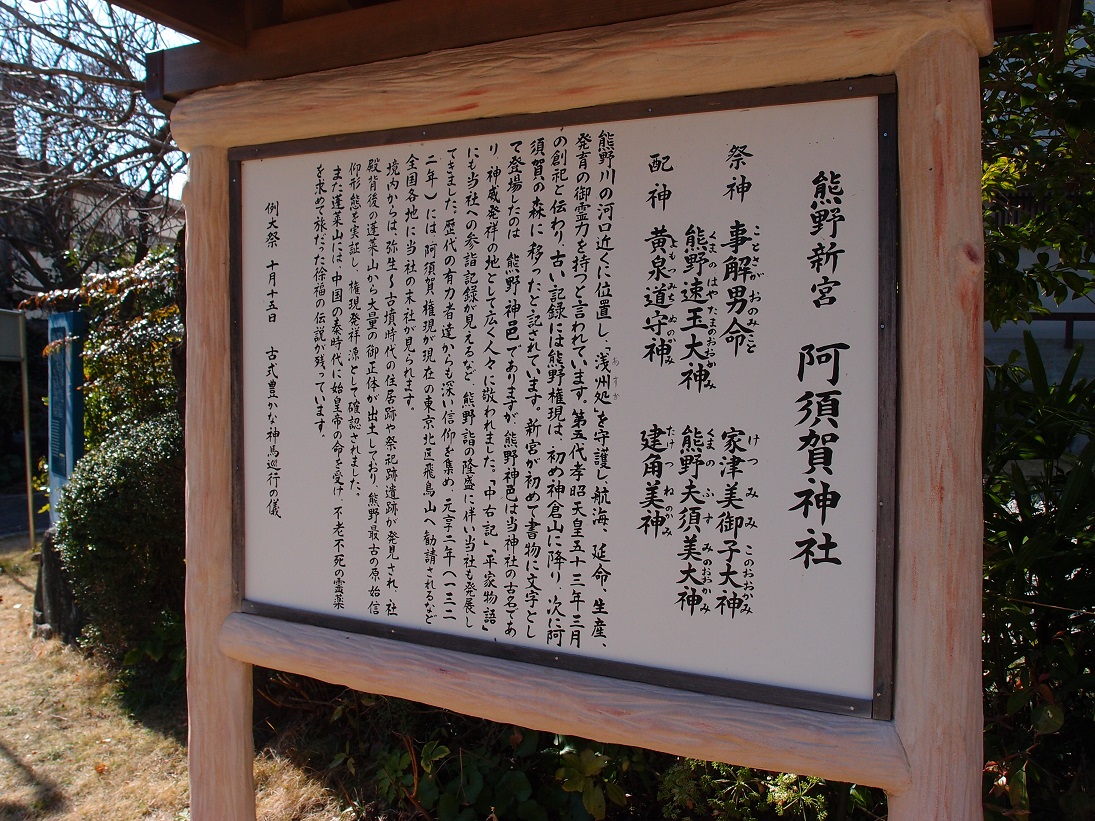 熊野新宮 阿須賀神社
祭神 事解男命 家津美御子大神
ことさかおのみこと けつみみこのおおかみ
熊野速玉大神 熊野夫須美大神
くまのはやたまのおおかみ くまのふすみのおおかみ
配神 黄泉道守神 建角美神
よもみちもりのかみ たけつねのかみ
熊野川の河口近くに位置し、「浅州処」を守護し、航海、延命、生産、
あすか
発育の御霊力を持つと言われています。第五代孝昭天皇五十三年三月
の創祀と伝わり、古い記録には熊野権現は、初め神倉山に降り、次に阿
須賀の森に移ったと記されています。新宮が初めて書物に文字とし
て登場したのは 熊野神邑でありますが、熊野神邑は当神社の古名であ
り、神威発祥の地として広く人々に敬われました。「中右記」「平家物語」
にも当社への参詣記録が見えるなど 熊野詣の隆盛に伴い当社も発展し
てきました。歴代の有力者達からも深い信仰を集め 元亨二年(一三二
二年)には阿須賀権現が現在の東京北区飛鳥山へ勧請されるなど
全国各地に当社の末社が見られます。
境内からは、弥生〜古墳時代の住居跡や祭祀跡遺跡が発見され、社
殿背後の蓬莱山から大量の御正体が出土しており、熊野最古の原始信
仰形態を実証し、権現発祥源として確認されました。
また蓬莱山には、中国の秦時代に始皇帝の命を受け 不老不死の霊薬
を求めて旅だった徐福の伝説が残っています。
例大祭 十月十五日 古式豊かな神馬巡行の儀